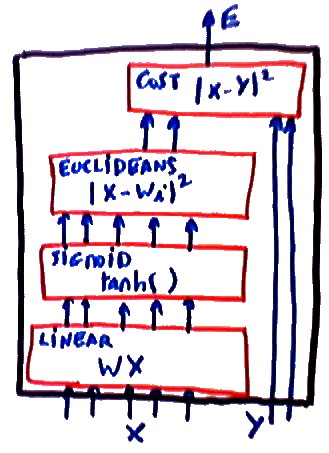 E
COST |X-Y|²
EUCLIDEANS
|X-Wi|²
SIGMOID
tanh()
LINEAR
WX
X
Y